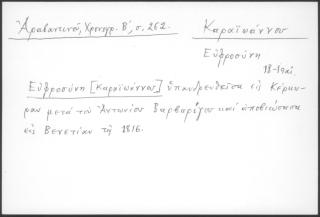 Ἀραβαντινό, Χρονογρ. Β', σ. 262.
Καραϊωάννου
Εὐφροσύνη
18-19αἰ.
Εὐφροσύνη [Καραϊωάννου] ὑπανδρευθεῖσα εἰς Κέρκυ-
ραν μετά τοῦ Ἀντωνίου Βαρβαρήγου καί ἀποβιώσασα
εἰς Βενετίαν τῇ 1816.